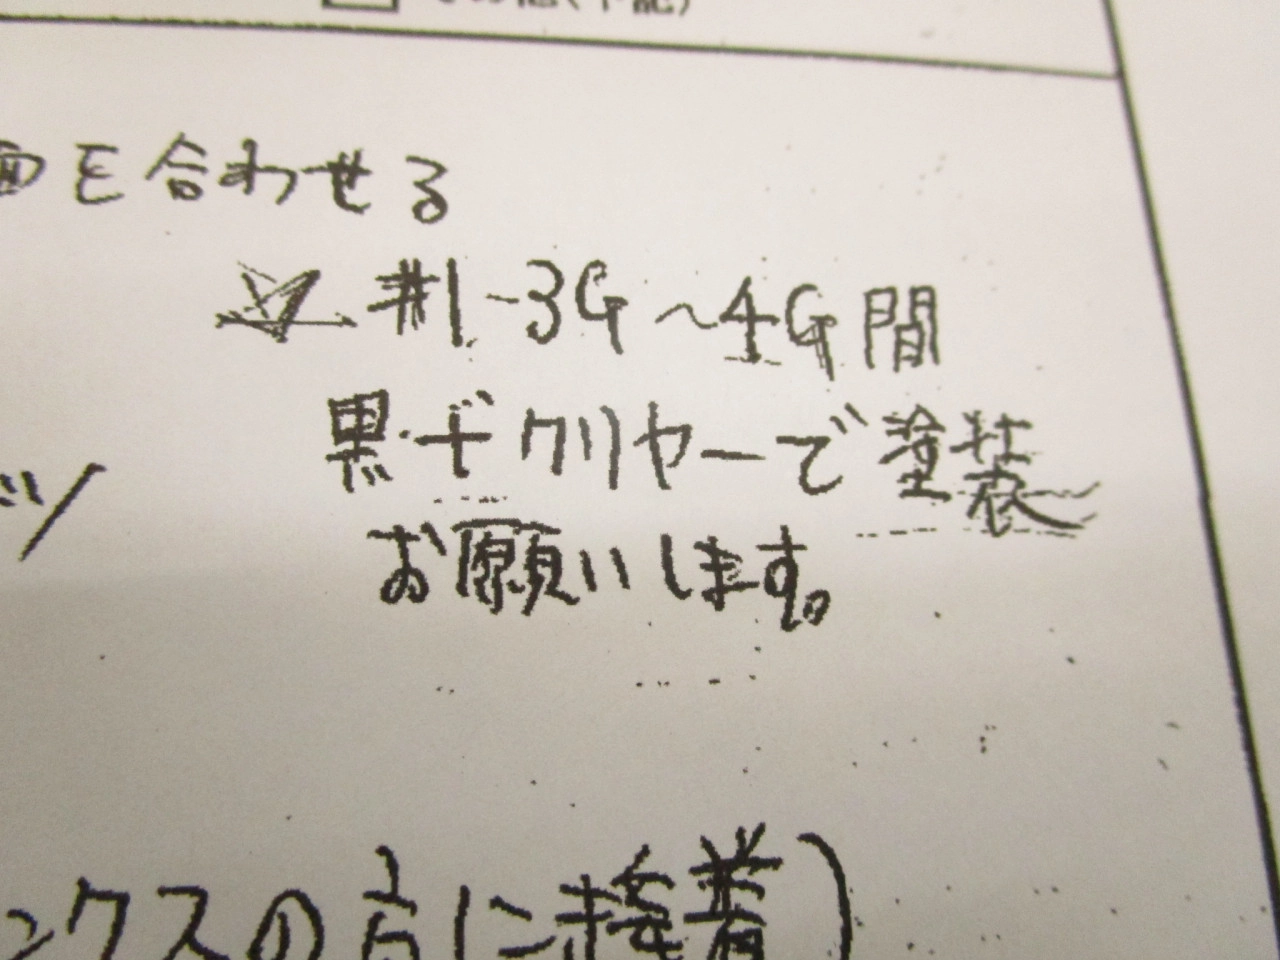 その他(下記)
面を合わせる
☆ #1-3G〜4G間
黒・ギクリヤーで塗装
お願いします。
ンクスの方に接着)